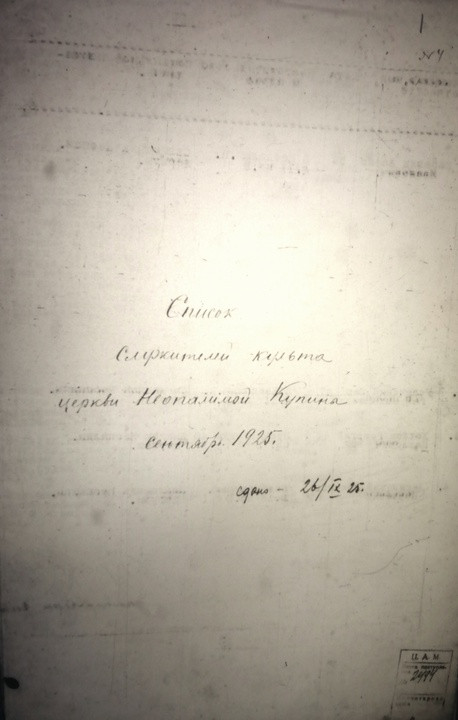 1
№4
Список
Служителей культа
церкви Неопалимой Купина
сентябрь 1925.
сдано - 26/IX 25.
Ц. А. М.